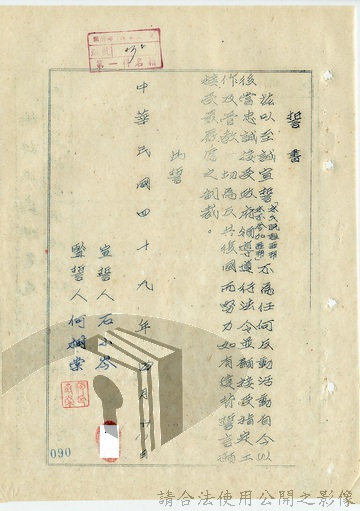 誓書
茲以至誠宣誓不為任何反動活動自今以
後當忠誠接受政府領導遵行法令並願接受指定工
作及管教一切為反共復國而努力如有違背誓言願
接受最嚴厲之制裁。
此誓
中華民國四十九年 月 日
宣誓人石小岑
監誓人何
090
請合法使用公開之影像